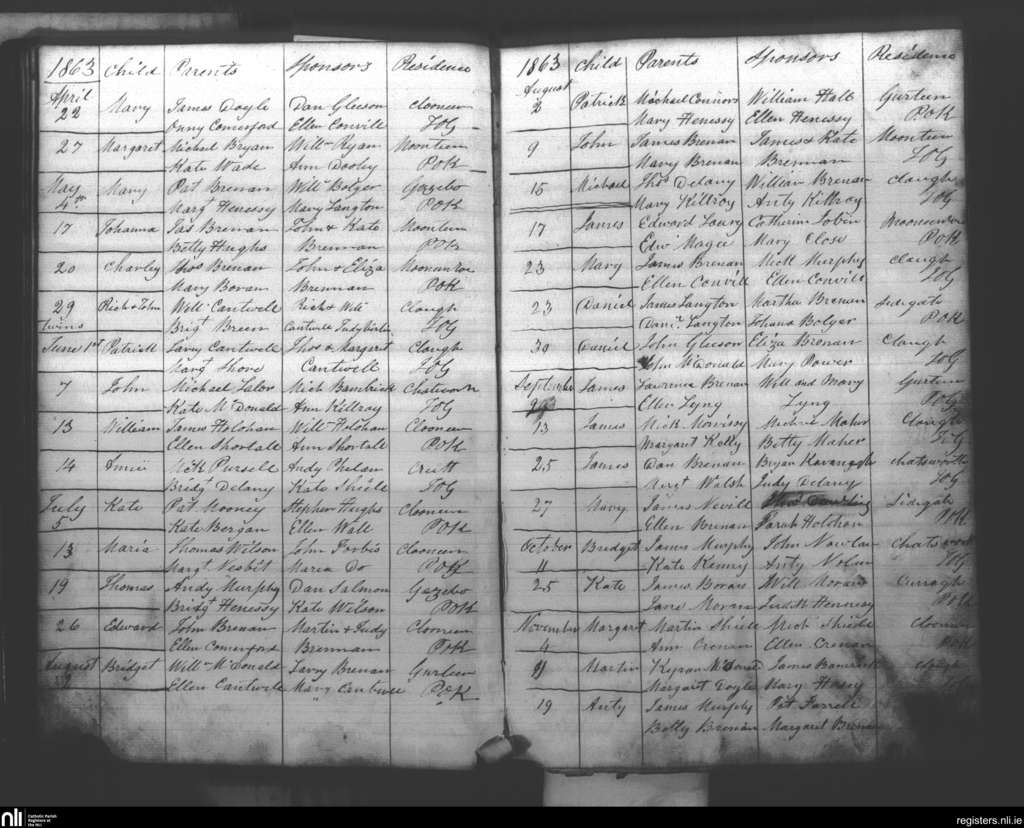 1863 Child Parents Sponsors Residence
April
22 Mary James Doyle Dan Gleeson Clooneen
Anny Comerford Ellen Convill JOG
27 Margaret Michael Bryan Willm Ryan Moonteen
Kate Wade Ann Dooley POK
May Mary Pat Brenan Willm Bolger Gazebo
4th Margt Henessy Mary Langton POK
17 Johanna Jas Brenan John & Kate Moonteen
Betty Hughs Brennan POK
20 Charley Thos Brenan John & Eliza Moonanroe
Mary Boran Brennan POK
29 Rich & John Willm Cantwell Rich & Willm Clough
twins Brigt Breen Cantwell Judy JOG
June 1st Patrick Larry Cantwell Thos & Margaret Clough
Margt Shore Cantwell JOG
7 John Michael Lalor Mich Bambrick Chatsworth
Kate McDonald Ann Killroy JOG
13 William James Holohan Willm Holohan Clooneen
Ellen Shortall Ann Shortall POK
14 Annie Mick Pursell Andy Phelan Crutt
Bridgt Delany Kate Shiele JOG
July Kate Pat Mooney Stephen Hughs Clooneen
5 Kate Bergan Ellen Wall POK
13 Maria Thomas Wilson John Forbis Clooneen
Margt Nesbit Maria Do POK
19 Thomas Andy Murphy Dan Salmon Gazebo
Bridgt Henessy Kate Wilson POK
26 Edward John Brenan Martin & Judy Clooneen
Ellen Comerford Brennan POK
August Bridget Willm McDonald Larry Brenan Gurteen
Ellen Cantwell Mary Cantwell POK
1863 Child Parents Sponsors Residence
August
2 Patrick Michael Connors William Holt Gurteen
Mary Henessy Ellen Henessy POK
9 John James Brenan James & Kate Moonteen
Mary Brenan Brennan JOG
15 Michael Thos Delany William Brenan Clough
Mary Killroy Anty Killroy JOG
17 James Edward Lowry Catherin Tobin Moonanroe
Edw Magee Mary Close POK
23 Mary James Brenan Mick Murphy Clough
Ellen Convill Ellen Convill JOG
23 Daniel James Langton Martha Brenan Sidigate
Danl Langton Johana Bolger POK
30 Daniel John Gleeson Eliza Bronan Clough
McDonald Mary Power JOG
September James Lawrence Brenan Will and Mary Gurteen
Ellen Lyng Lyng POK
13 James Mick Morrissy Michael Maher Clough
Margaret Kelly Betty Maher JOG
25 James Dan Brenan Bryan Kavanagh Chatsworth
Margt Walsh Judy Delany JOG
27 Mary James Nevill Sidigate
Ellen Brenan Sarah Holohan POK
October Bridget James Murphy John Nowlan Chatsworth
4 Kate Kenny Anty Nolan JOG
25 Kate James Boran Will Moran Curragh
Jane Moran Judith Hennessy POK
November Margart Martin Shiell Mich Shiele Clooneen
4 Ann Cronan Ellen Cronan POK
11 Martin Kyran McDonald James Bambrick Clough
Margaret Doyle Mary Hessy
19 Anty James Murphy Pat Farrell
Betty Bronan Margaret Brenan
nli Catholic Parish
Registers at
the NLI
registers.nli.ie